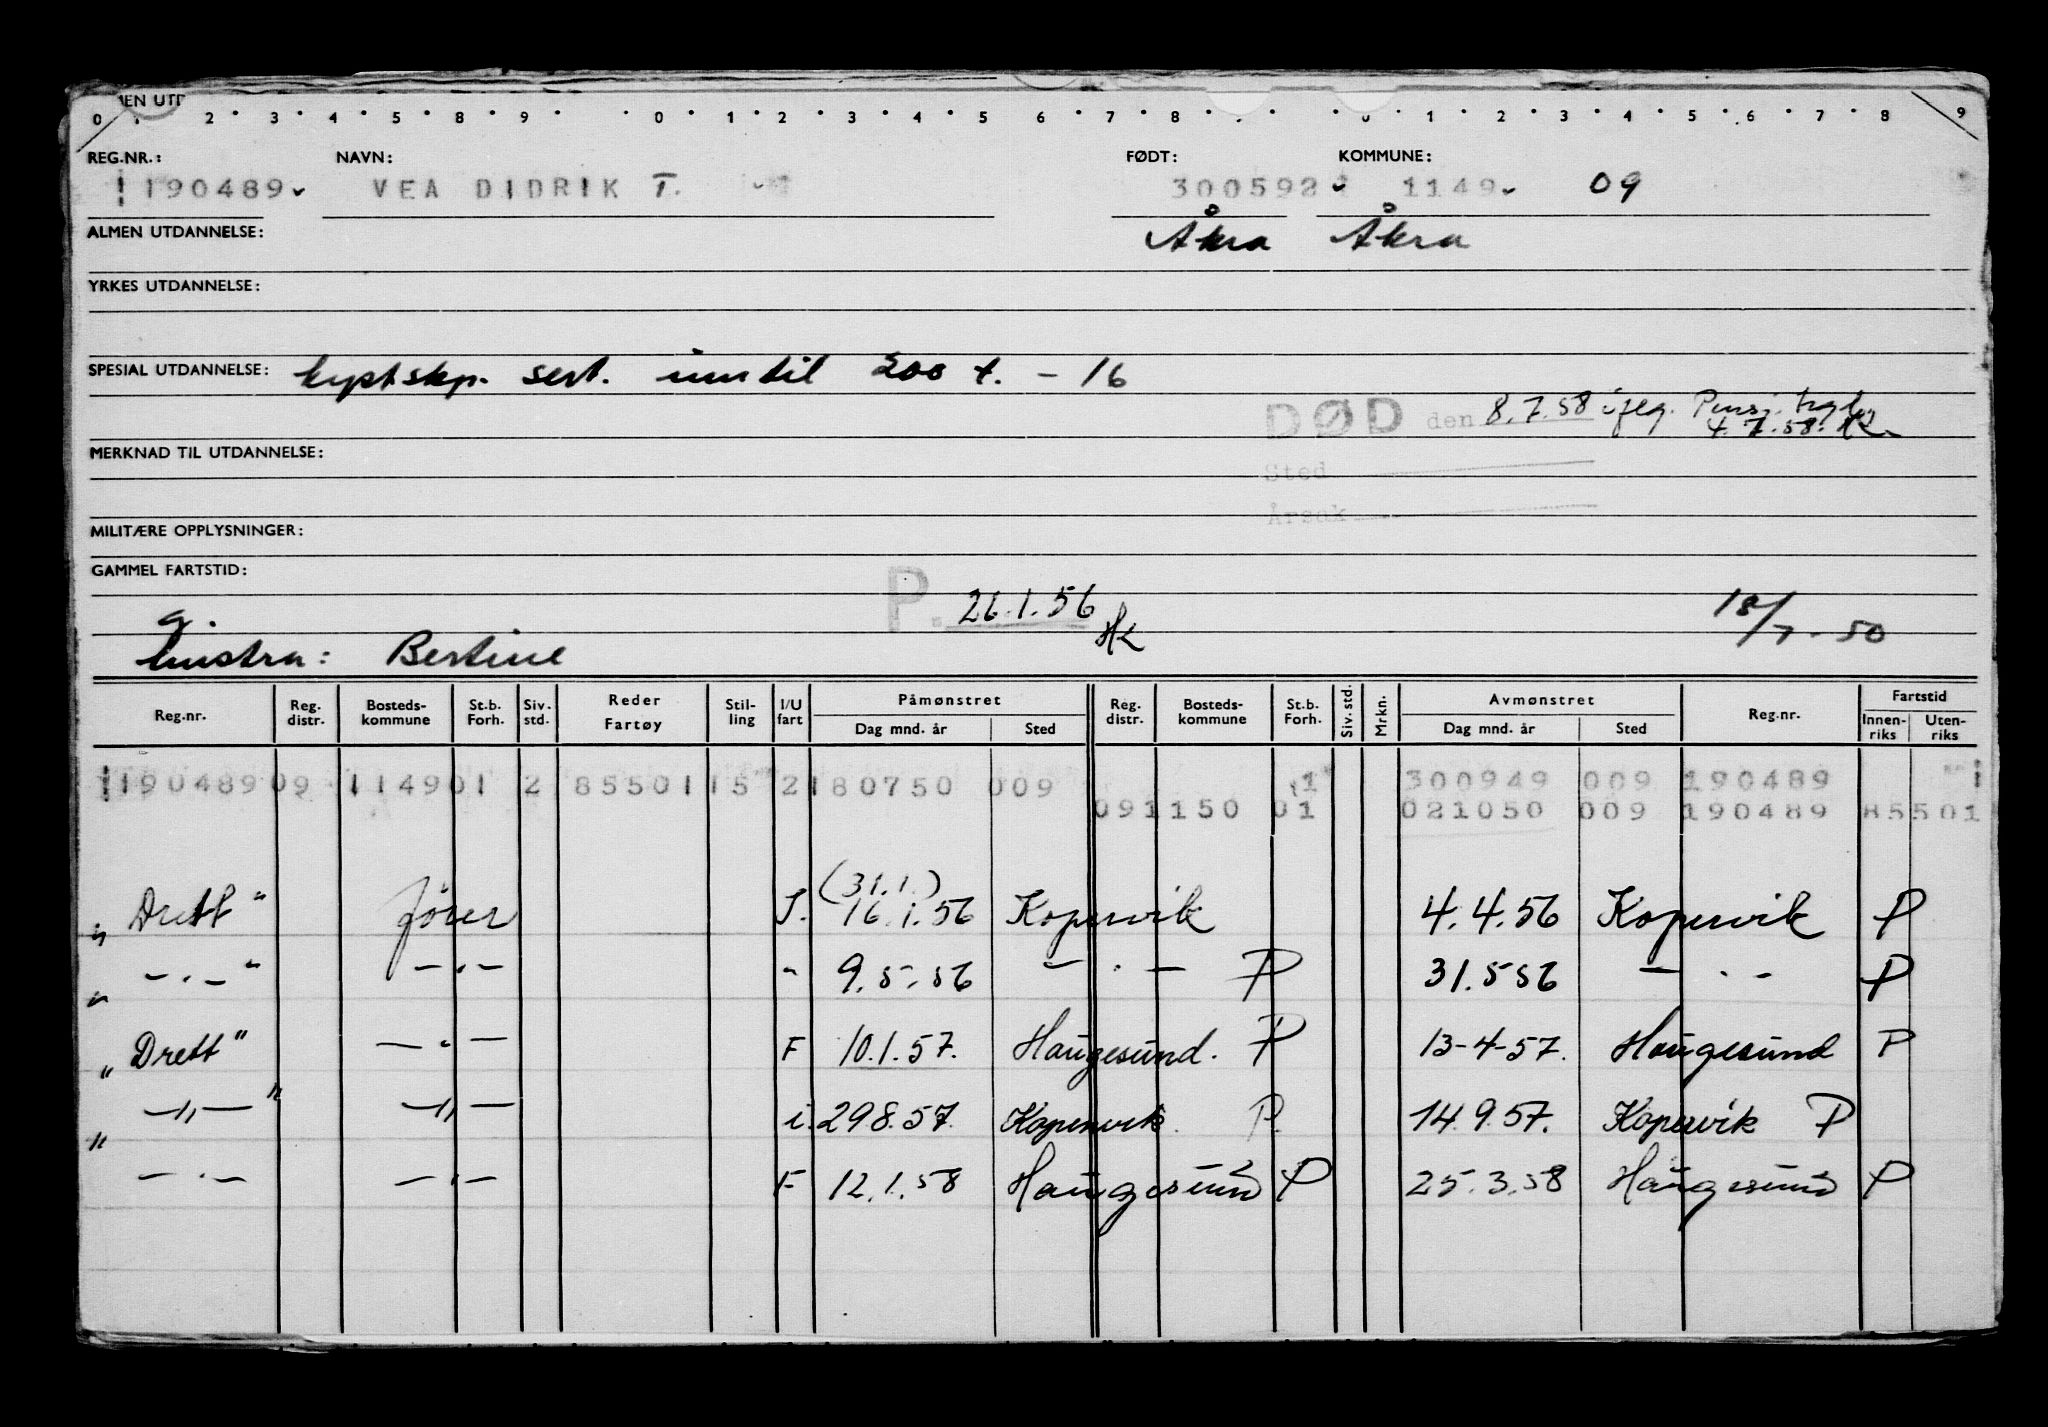 MEN UTD
0 2 3 4 5 8 9 0 1 2 3 4 5 6 7 8 0 1 2 3 4 5 6 7 8 9
REG.NR.: NAVN: FØDT: KOMMUNE:
190489 VEA DIDRIK T. 300592 1149 09
ALMEN UTDANNELSE: Åkra Åkra
YRKES UTDANNELSE:
SPESIAL UTDANNELSE: kystskp. sert. inntil 200 t. - 16
DØD den 8.7.58 iflg. Pensj. trygd
4.7.58. HK
MERKNAD TIL UTDANNELSE:
Sted
Årsak
MILITÆRE OPPLYSNINGER:
GAMMEL FARTSTID:
P. 26.1.56 HK 18/7-50
g.
hustru: Bertine
Reg.nr. Reg. distr. Bosteds-kommune St.b. Forh. Siv. std. Reder Fartøy Stil-ling I/U fart Påmønstret Dag mnd. år Sted Reg. distr. Bosteds-kommune St.b. Forh. Siv. std. Mrkn. Avmønstret Dag mnd. år Sted Reg.nr. Fartstid Innen-riks Uten-riks
190489 09 1149 01 2 85501 15 2 180750 009 1 300949 009 190489 1
091150 01 021050 009 190489 85501
(31.1.)
„Drett" fører I. 16.1.56 Kopervik 4.4.56 Kopervik P
„ -.- " -.- " 9.5.56 -.- P 31.5 56 -.- P
„Drett" -.- F 10.1.57. Haugesund. P 13-4-57. Haugesund P
-"- " -"- i. 29 8.57. Kopervik. P. 14.9.57. Kopervik P
" -.- -.- F 12.1.58 Haugesund P 25.3.58 Haugesund P